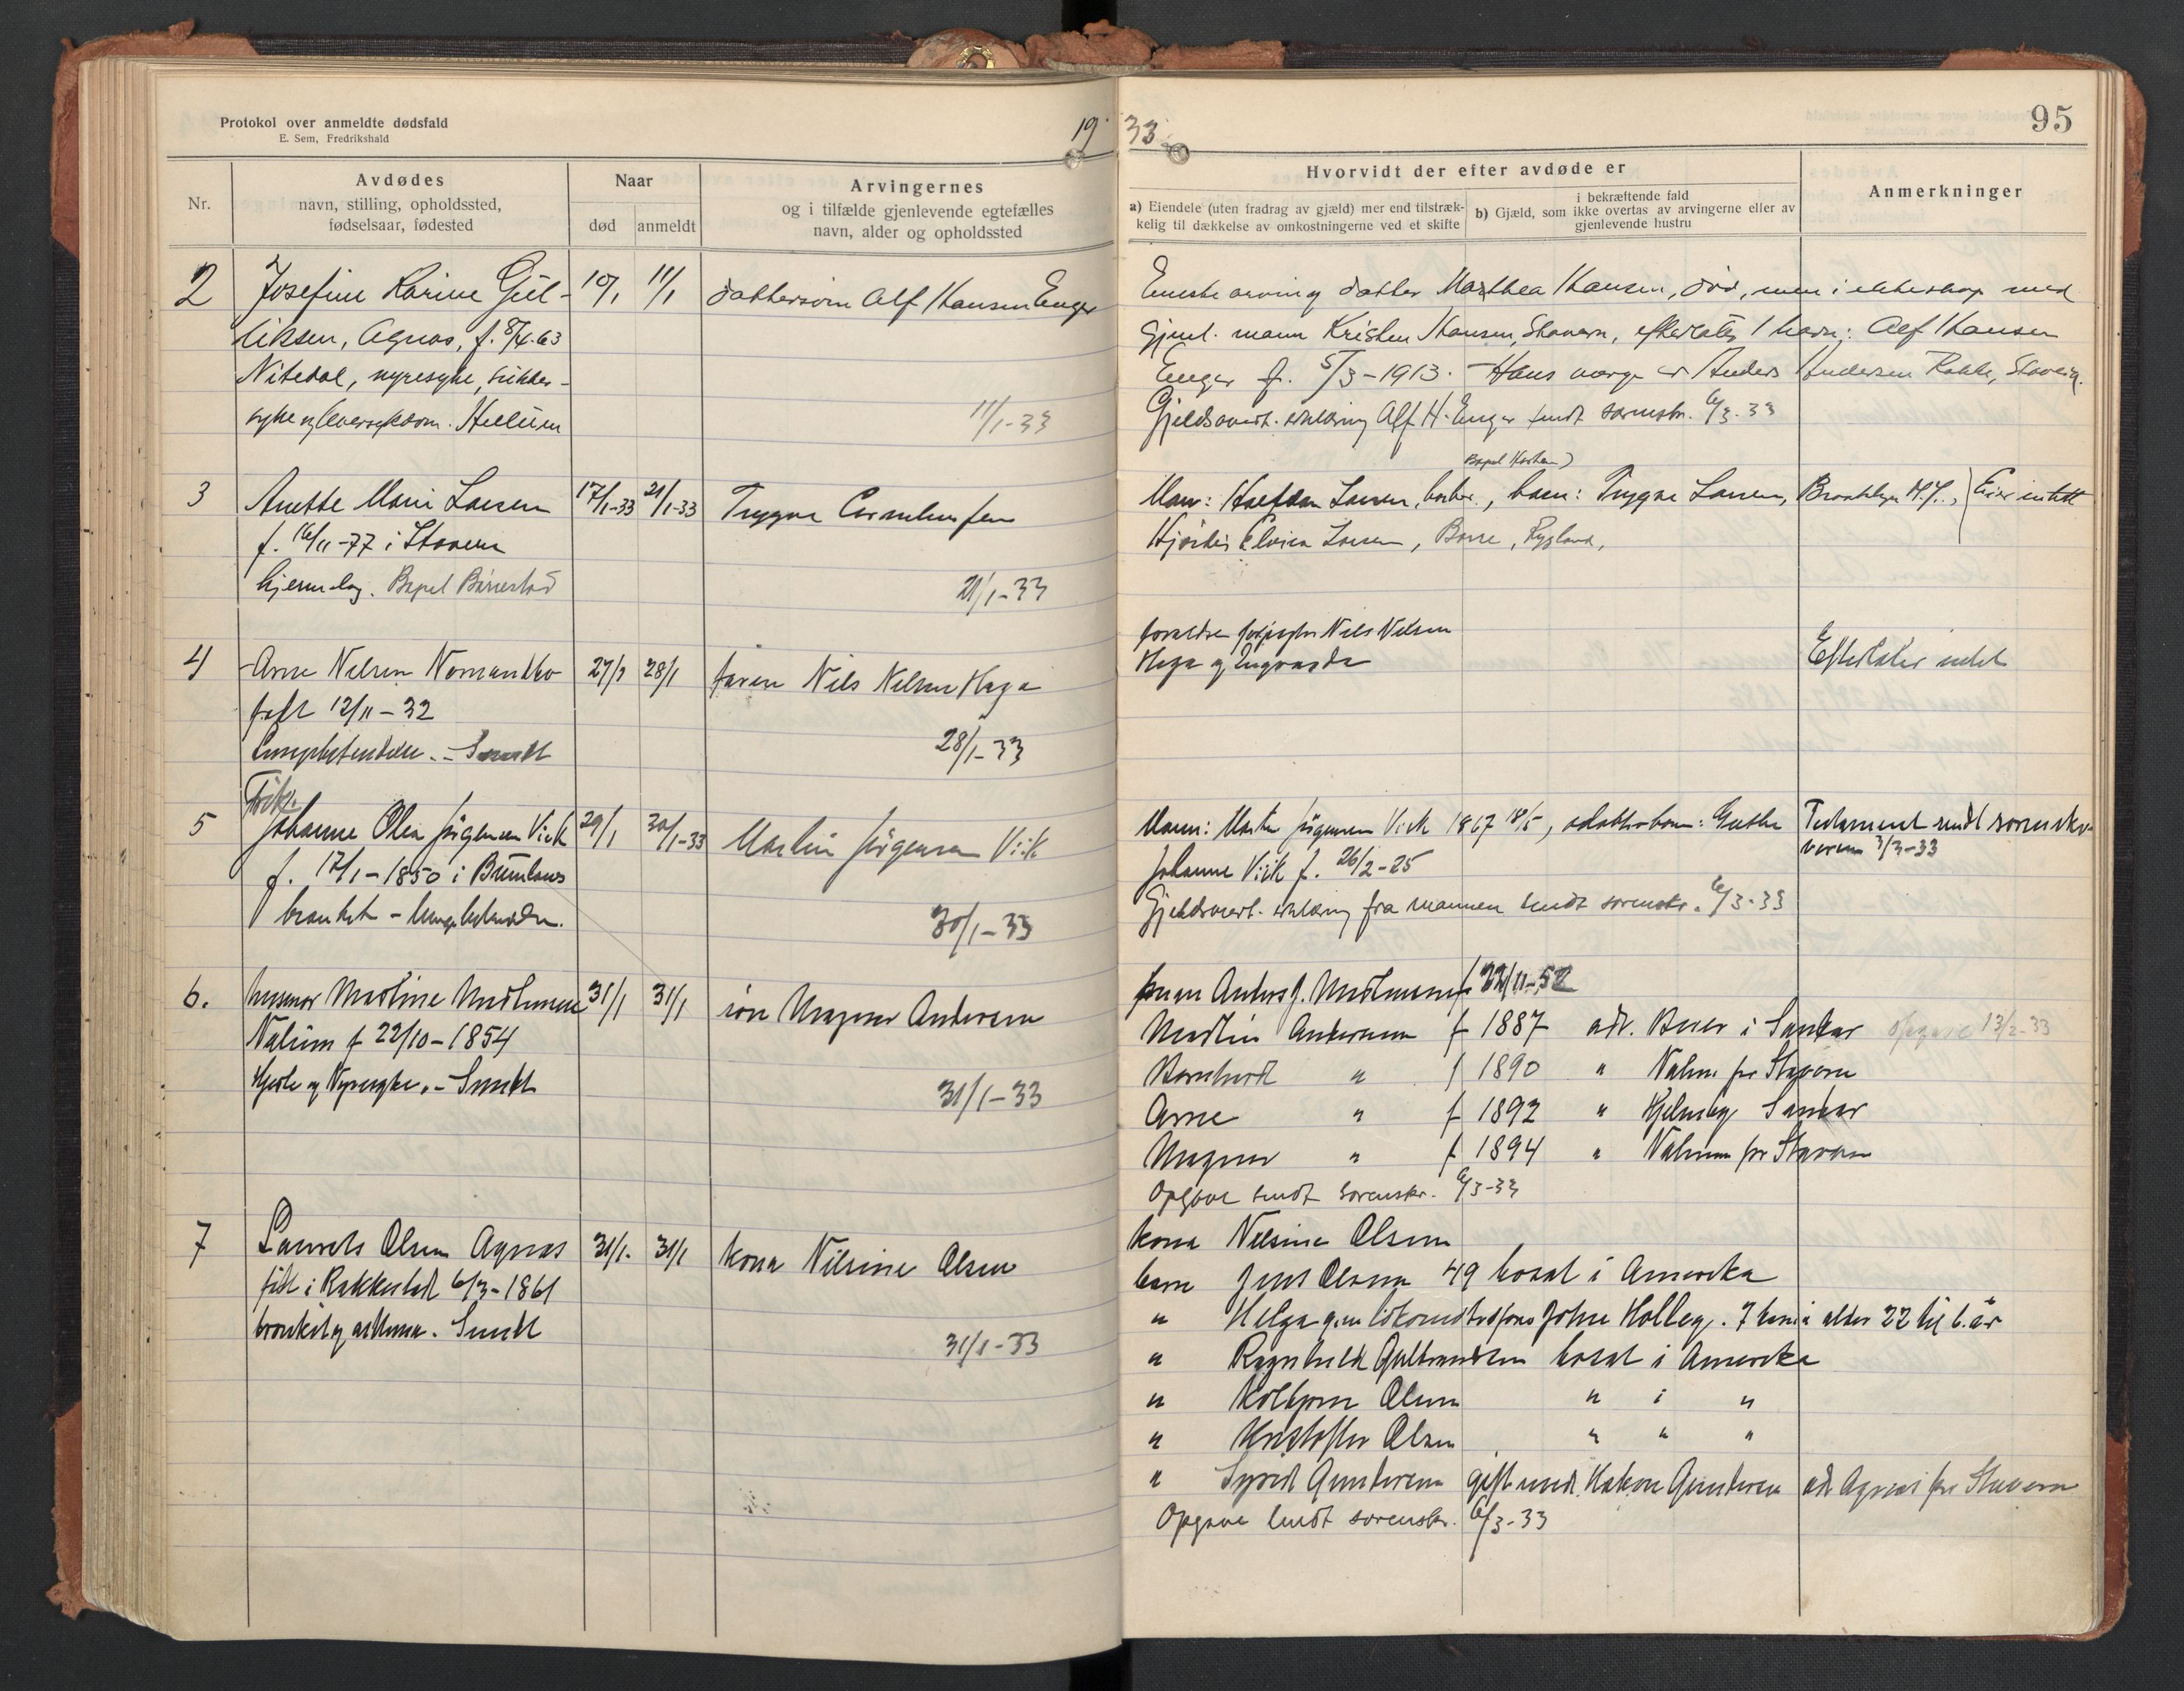 Protokol over anmeldte dødsfald
E. Sem, Fredrikshald
19 33
95
Nr.
Avdødes
navn, stilling, opholdssted,
fødselsaar, fødested
Naar
død
anmeldt
Arvingernes
og i tilfælde gjenlevende egtefælles
navn, alder og opholdssted
Hvorvidt der efter avdøde er
a) Eiendele (uten fradrag av gjæld) mer end tilstræk-
kelig til dækkelse av omkostningerne ved et skifte
i bekræftende fald
b) Gjæld, som ikke overtas av arvingerne eller av
gjenlevende hustru
Anmerkninger
2 Josefine Karine Gul- 10/1 11/1 dattersøn Alf Hansen Enger
liksen, Agnas, f. 8/4-63
Nitedal, nyresyke, sukker-
syke og leversykdom.
11/1-33
Eneste arving datter Marthea Hansen, død, men i ekteskap med
gjenl. mann Kristen Hansen, Stavern, efterlatt 1 barn: Alf Hansen
Enger f. 5/3-1913. Hans verge er Anders Andersen Rakke, Stavern.
Gjeldsovert. erklæring Alf H. Enger sendt sorenskr. 6/3-33
3 Anette Marie Larsen 17/1-33 21/1-33 Trygve
f. 16/11-77 i Stavern
hjerneslag.
21/1-33
Mann: Halfdan Larsen, barn: Trygve Larsen, Brooklyn N.Y., Eier intet
Hjördis Elvira Larsen,
4 Arne Nilsen 27/1 28/1 faren Nils Nilsen Haga
født 12/11-32
Lungebetendelse. - Sendt
28/1-33
foreldre Nils Nilsen
Haga og
Efterlater intet
5 Johanne Olea Jørgensen Vik 29/1 30/1-33 Martin Jørgensen Vik
f. 17/1-1850 i Brunlanes
bronkit - lungebetendelse.
30/1-33
Mann: Martin Jørgensen Vik 1867 18/5, adoptivbarn: Grethe
Johanne Vik f. 26/2-25
Gjeldsovert. erklæring fra mannen sendt sorenskr. 6/3-33
Testament sendt sorenskri-
veren 3/3-33
6. husmor Martine 31/1 31/1 søn Magnus Andersen
Nalum f 22/10-1854
Hjerte og Nyresyke. - Sendt
31/1-33
Martin Andersen f 1887 adr. i Sandar opgave 13/2-33
Bernhard " f 1890 " Nalum pr Stavern
Arne " f 1892 " Sandar
Magnus " f 1894 " Nalum pr Stavern
Opgave sendt sorenskr. 6/3-33
7 Laurits Olsen Agnas 31/1. 31/1 kona Nilsine Olsen
født i Rakkestad 6/3-1861
bronkit og asthma. Sendt
31/1-33
kona Nilsine Olsen
barn Jens Olsen 49 bosat i Amerika
" Helga Johne 7 barn i alder 22 til 6. år
" Ragnhild Gulbrandsen bosat i Amerika
" Kolbjørn Olsen " i "
" Kristoffer Olsen " " "
" Sigrid Gundersen gift med Håkon Gundersen adr Agnes pr Stavern
Opgave sendt sorenskr. 6/3-33